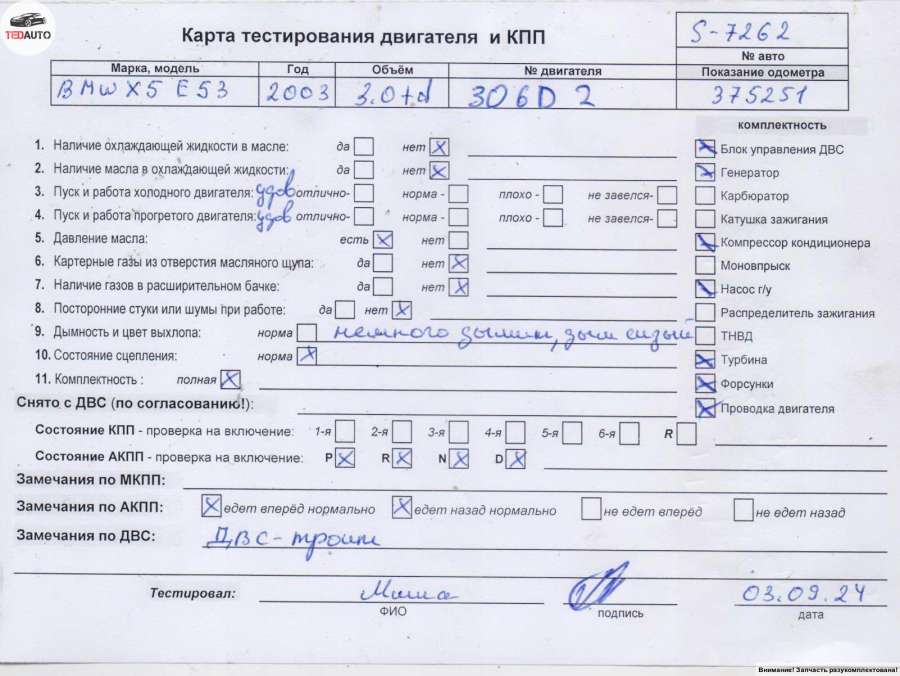 TEDAUTO
Карта тестирования двигателя и КПП
S-7262
№ авто
Марка, модель Год Объём № двигателя Показание одометра
BMW X5 E53 2003 3.0td 306D 2 375251
комплектность
1. Наличие охлаждающей жидкости в масле: да нет Блок управления ДВС
2. Наличие масла в охлаждающей жидкости: да нет Генератор
3. Пуск и работа холодного двигателя: удов отлично- норма - плохо - не завелся- Карбюратор
4. Пуск и работа прогретого двигателя: удов отлично- норма - плохо - не завелся- Катушка зажигания
5. Давление масла: есть нет Компрессор кондиционера
6. Картерные газы из отверстия масляного щупа: да нет Моновпрыск
7. Наличие газов в расширительном бачке: да нет Насос г/у
8. Посторонние стуки или шумы при работе: да нет Распределитель зажигания
9. Дымность и цвет выхлопа: норма немного дымит, дым сизый ТНВД
10. Состояние сцепления: норма Турбина
11. Комплектность : полная Форсунки
Снято с ДВС (по согласованию!): Проводка двигателя
Состояние КПП - проверка на включение: 1-я 2-я 3-я 4-я 5-я 6-я R
Состояние АКПП - проверка на включение: P R N D
Замечания по МКПП:
Замечания по АКПП: едет вперёд нормально едет назад нормально не едет вперёд не едет назад
Замечания по ДВС: ДВС-троит
Тестировал: Миша 03.09.24
ФИО подпись дата
Внимание! Запчасть разукомплектована!